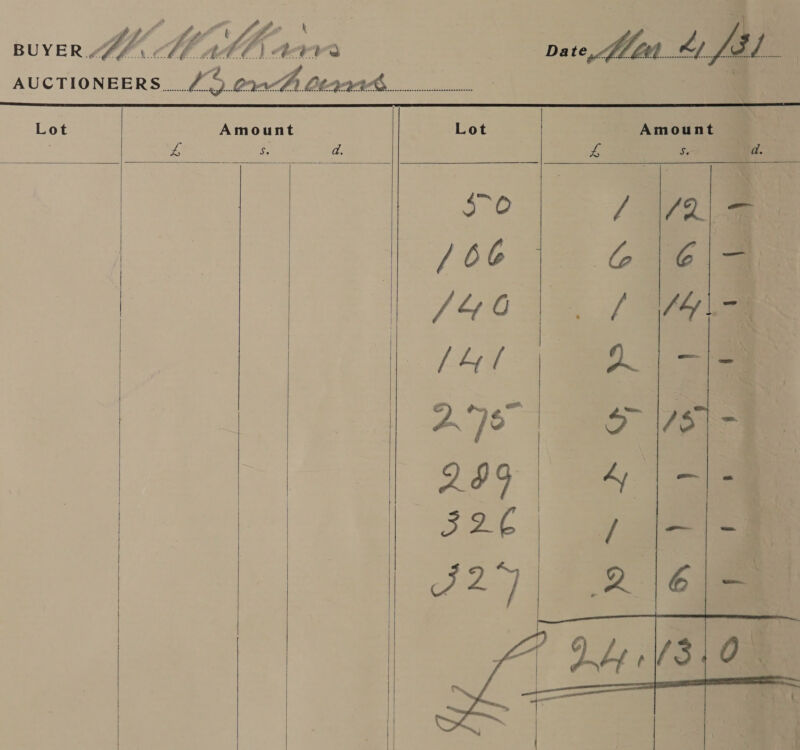 BUYER W. Wilkins Date, Mar 4/31
AUCTIONEERS Bonhams
Lot Amount Lot Amount
£ s. d. £ s. d.
50 1 12 -
106 6 6 -
140 1 14 -
141 2 - -
275 5 15 -
289 4 - -
326 1 - -
327 2 6 -
£ 24.13.0